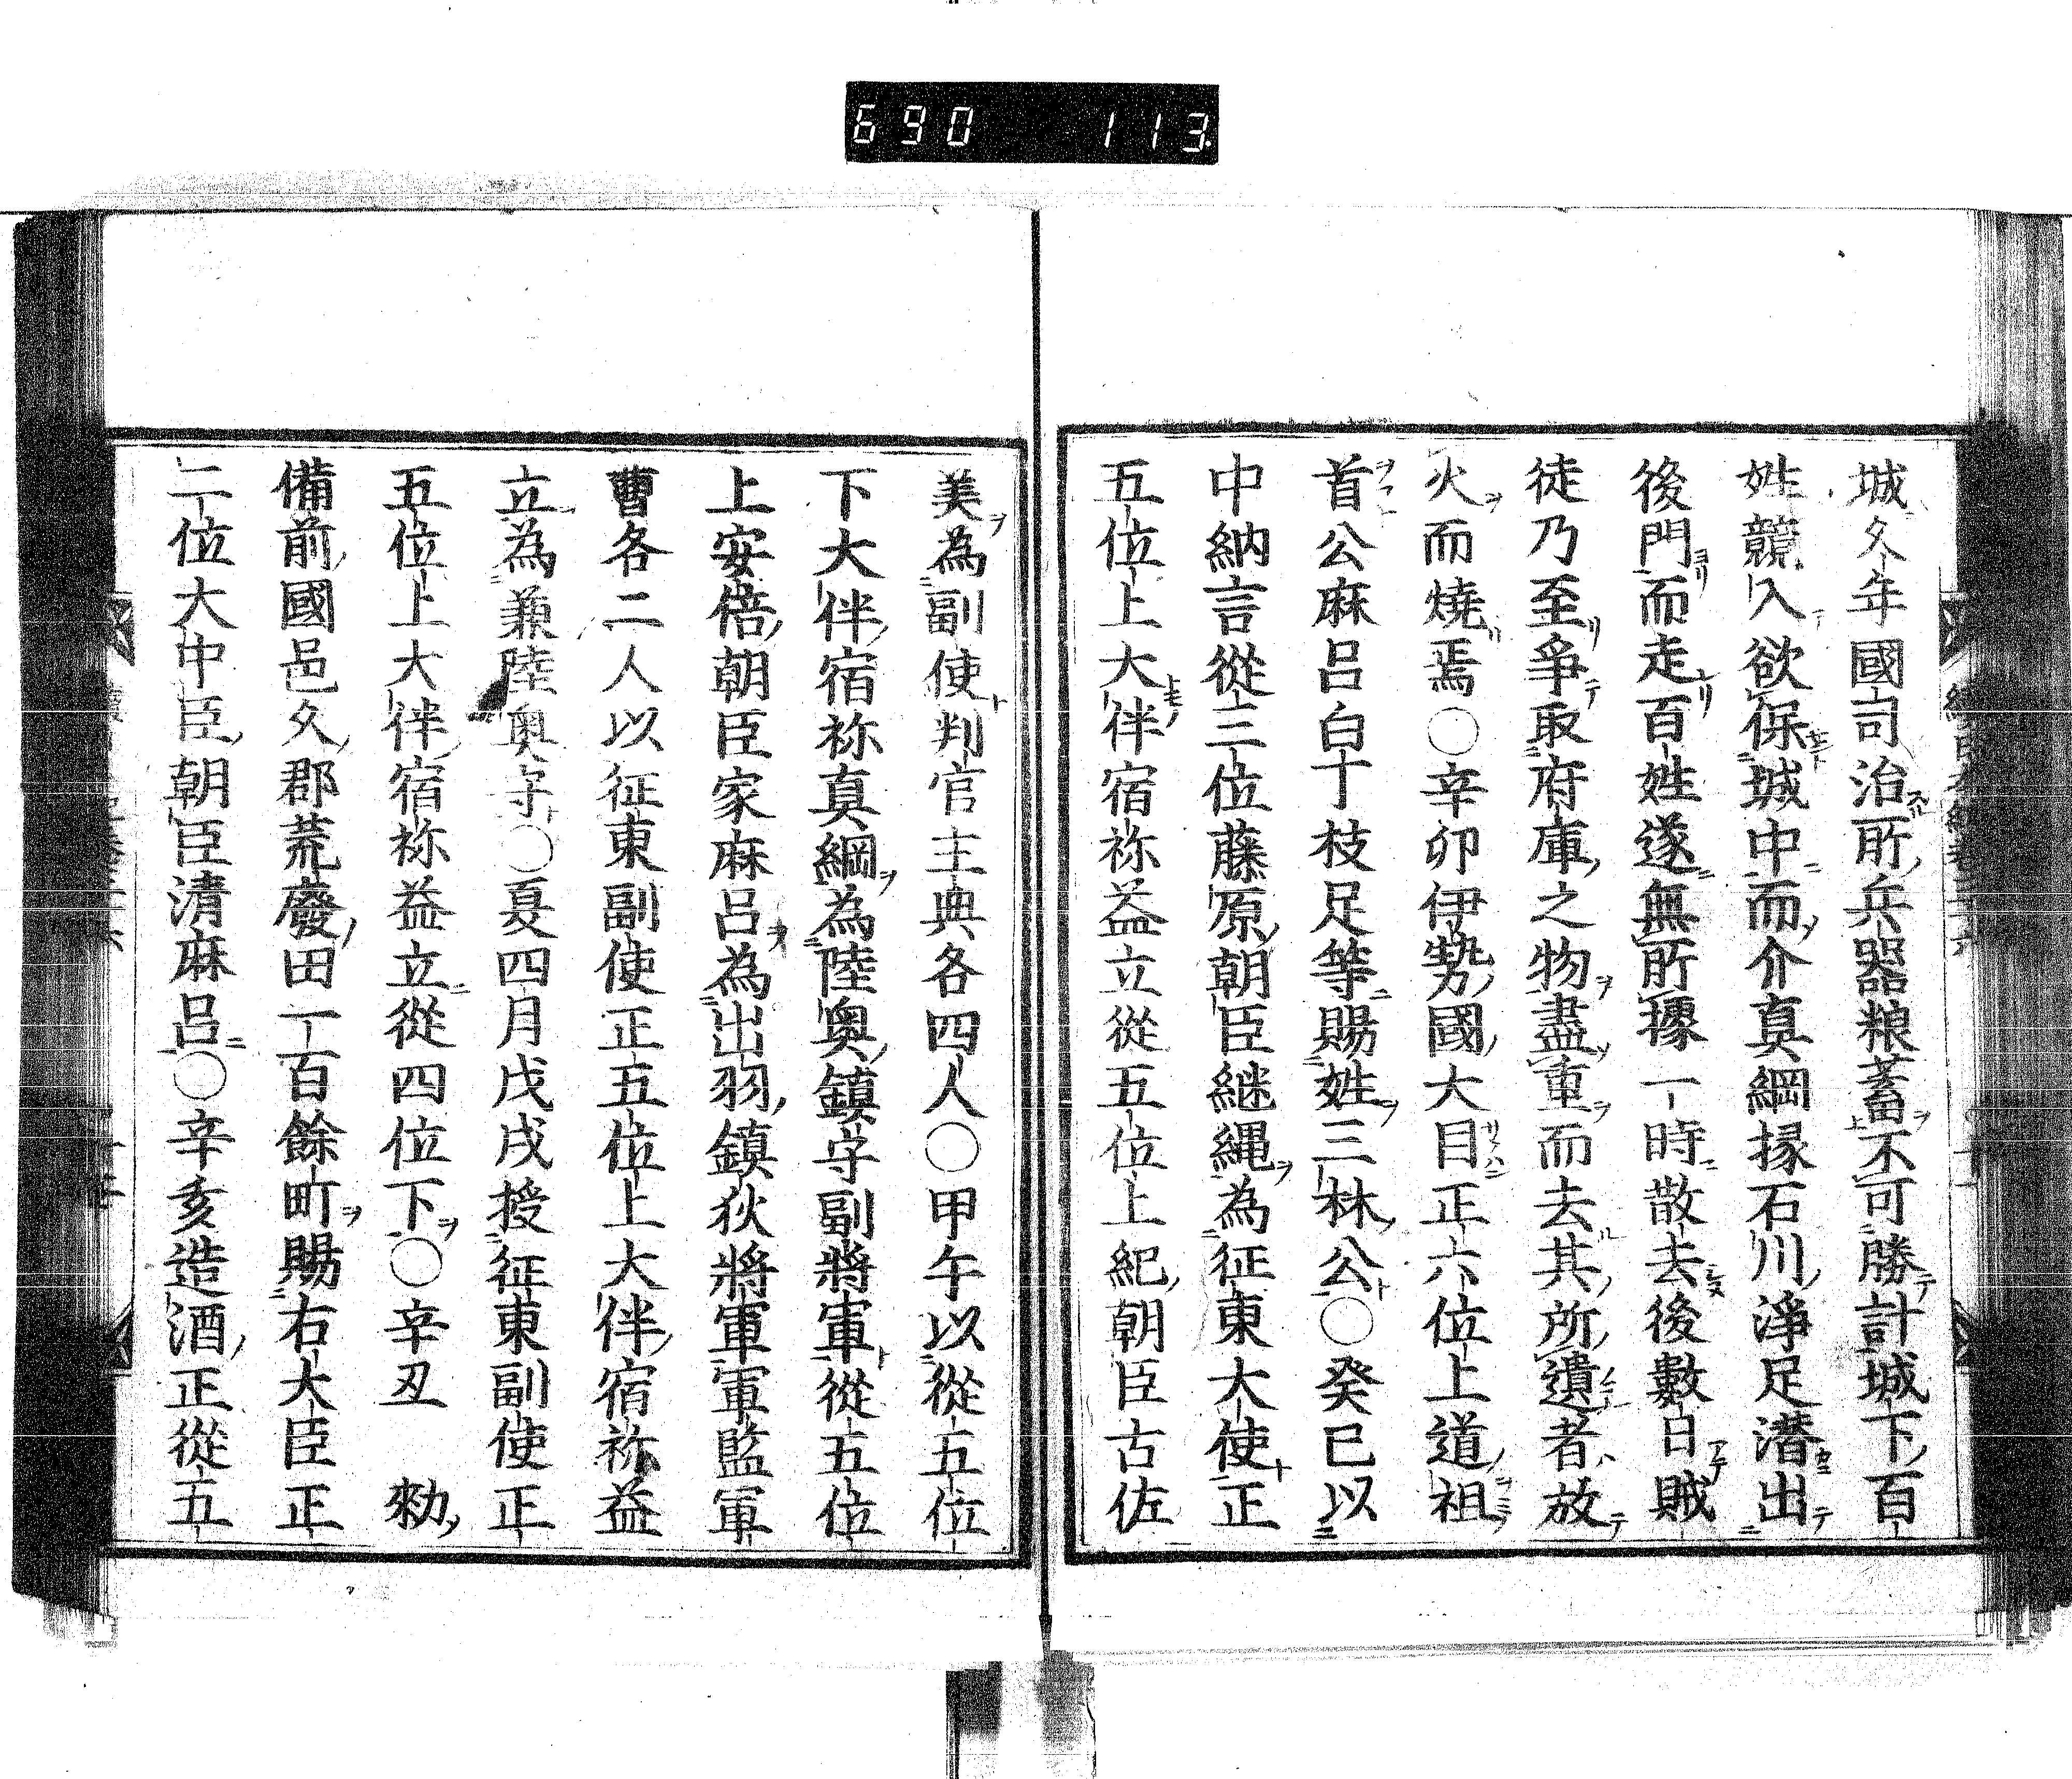 690 113
城久年國司治所兵器粮蓄不可勝計城下百
姓競入欲保城中而介真綱掾石川淨足潜出
後門而走百姓遂無所據一時散去後數日賊
徒乃至爭取府庫之物盡重而去其所遺者放
火而燒焉○辛卯伊勢國大目正六位上道祖
首公麻呂白丁枝足等賜姓三林公○癸巳以
中納言從三位藤原朝臣継縄為征東大使正
五位上大伴宿祢益立從五位上紀朝臣古佐
美為副使判官主典各四人○甲午以從五位
下大伴宿祢真綱為陸奥鎮守副將軍從五位
上安倍朝臣家麻呂為出羽鎮狄將軍軍監軍
曹各二人以征東副使正五位上大伴宿祢益
立為兼陸奥守○夏四月戊戌授征東副使正
五位上大伴宿祢益立從四位下○辛丑　勑
備前國邑久郡荒廢田一百餘町賜右大臣正
二位大中臣朝臣清麻呂○辛亥造酒正從五